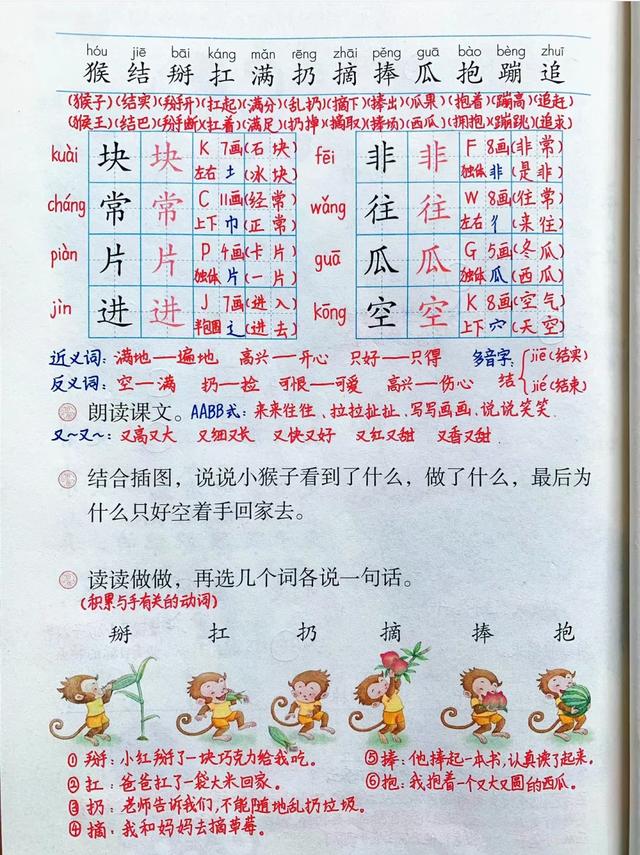 hóu jiē bāi káng mǎn rēng zhāi pěng guā bào bèng zhuī
猴 结 掰 扛 满 扔 摘 捧 瓜 抱 蹦 追
(猴子)(结实)(掰开)(扛起)(满分)(乱扔)(摘下)(捧出)(瓜果)(抱着)(蹦高)(追赶)
(猴王)(结巴)(掰断)(扛着)(满足)(扔掉)(摘取)(捧场)(西瓜)(拥抱)(蹦跳)(追求)
kuài 块 块 K 7画(石块) 左右 土 (冰块)
fēi 非 非 F 8画(非常) 独体 非 (是非)
cháng 常 常 C 11画(经常) 上下 巾 (正常)
wǎng 往 往 W 8画(往常) 左右 彳 (来往)
piàn 片 片 P 4画(卡片) 独体 片 (一片)
guā 瓜 瓜 G 5画(冬瓜) 独体 瓜 (西瓜)
jìn 进 进 J 7画(进入) 半包围 辶 (进去)
kōng 空 空 K 8画(空气) 上下 穴 (天空)
近义词：满地——遍地 高兴——开心 只好——只得
反义词：空—满 扔—捡 可恨—可爱 高兴—伤心
多音字：结 jiē(结实) jié(结束)
朗读课文。AABB式：来来往往、拉拉扯扯、写写画画、说说笑笑
又~又~：又高又大 又细又长 又快又好 又红又甜 又香又甜
结合插图，说说小猴子看到了什么，做了什么，最后为
什么只好空着手回家去。
读读做做，再选几个词各说一句话。
(积累与手有关的动词)
掰 扛 扔 摘 捧 抱
①掰：小红掰了一块巧克力给我吃。
②扛：爸爸扛了一袋大米回家。
③扔：老师告诉我们，不能随地乱扔垃圾。
④摘：我和妈妈去摘草莓。
⑤捧：他捧起一本书，认真读了起来。
⑥抱：我抱着一个又大又圆的西瓜。